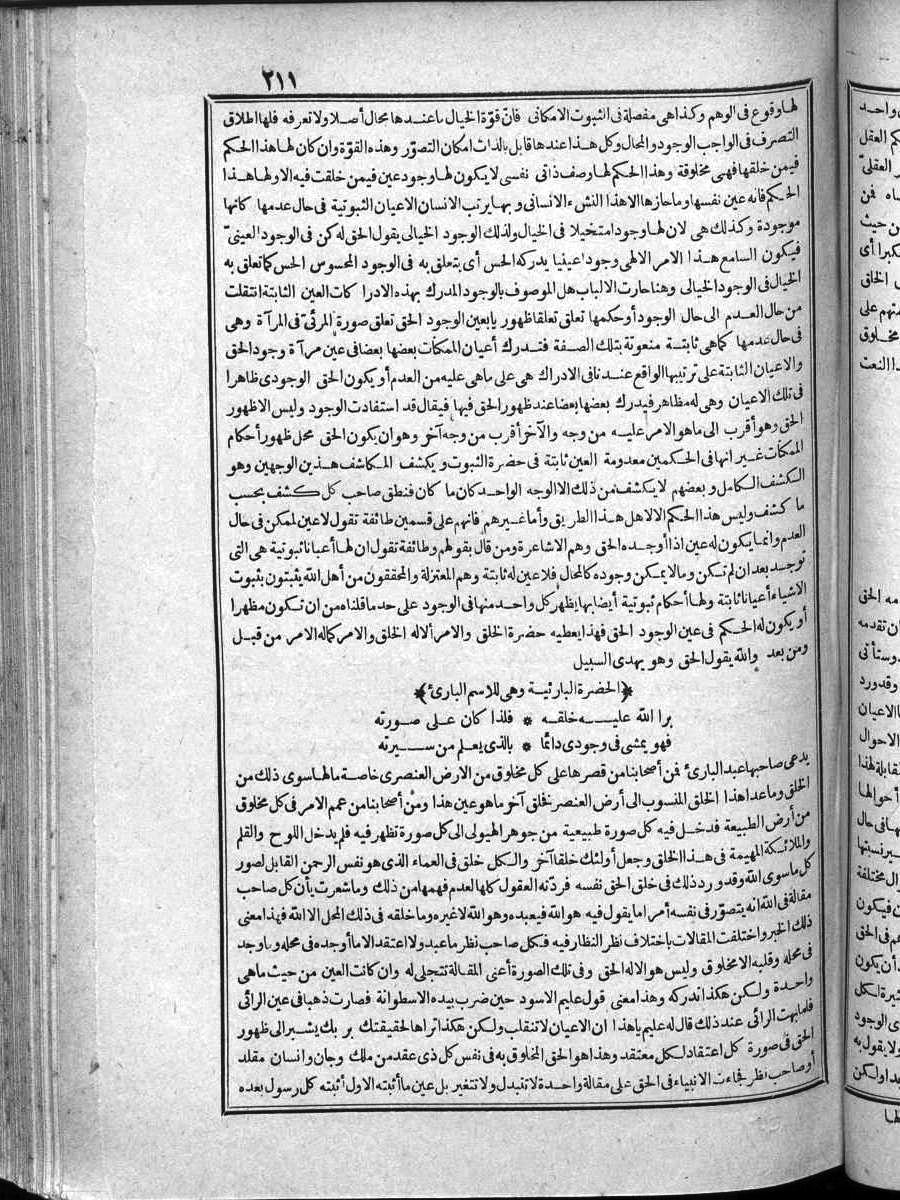 ٢١١
لها وقوع فى الوهم وكذا هى مفصلة فى الثبوت الامكانى فان قوّة الخيال ما عندها محال أصلا ولا تعرفه فلها اطلاق
التصرف فى الواجب الوجود والمحال وكل هذا عندها قابل بالذات امكان التصوّر وهذه القوّة وان كان لها هذا الحكم
فيمن خلقها فهى مخلوقة وهذا الحكم لها وصف ذاتى نفسى لا يكون لها وجود عين فيمن خلقت فيه الا ولها هذا
الحكم فانه عين نفسها وما حازها الا هذا النشء الانسانى وبها يرتب الانسان الاعيان الثبوتية فى حال عدمها كانها
موجودة وكذلك هى لان لها وجودا متخيلا فى الخيال ولذلك الوجود الخيالى يقول الحق له كن فى الوجود العينىّ
فيكون السامع هذا الامر الالهى وجودا عينيا يدركه الحس أى يتعلق به فى الوجود المحسوس الحس كما تعلق به
الخيال فى الوجود الخيالى وهنا حارت الالباب هل الموصوف بالوجود المدرك بهذه الادراكات العين الثابتة انتقلت
من حال العدم الى حال الوجود أو حكمها تعلق تعلقا ظهوريا بعين الوجود الحق تعلق صورة المرئىّ فى المرآة وهى
فى حال عدمها كما هى ثابتة منعوتة بتلك الصفة فتدرك أعيان الممكنات بعضها بعضا فى عين مرآة وجود الحق
والاعيان الثابتة على ترتيبها الواقع عندنا فى الادراك هى على ما هى عليه من العدم أو يكون الحق الوجودى ظاهرا
فى تلك الاعيان وهى له مظاهر فيدرك بعضها بعضا عند ظهور الحق فيها فيقال قد استفادت الوجود وليس الا ظهور
الحق وهو أقرب الى ما هو الامر عليه من وجه والآخر أقرب من وجه آخر وهو ان يكون الحق محل ظهور أحكام
الممكنات غير انها فى الحكمين معدومة العين ثابتة فى حضرة الثبوت ويكشف المكاشف هذين الوجهين وهو
الكشف الكامل وبعضهم لا يكشف من ذلك الا الوجه الواحد كان ما كان فنطق صاحب كل كشف بحسب
ما كشف وليس هذا الحكم الا لاهل هذا الطريق وأما غيرهم فانهم على قسمين طائفة تقول لا عين لممكن فى حال
العدم وانما يكون له عين اذا أوجده الحق وهم الاشاعرة ومن قال بقولهم وطائفة تقول ان لها أعيانا ثبوتية هى التى
توجد بعد ان لم تكن وما لا يمكن وجوده كالمحال فلا عين له ثابتة وهم المعتزلة والمحققون من أهل الله يثبتون بثبوت
الاشياء أعيانا ثابتة ولها أحكام ثبوتية أيضا بها يظهر كل واحد منها فى الوجود على حد ما قلناه من ان تكون مظهرا
أو يكون له الحكم فى عين الوجود الحق فهذا يعطيه حضرة الخلق والامر ألا له الخلق والامر كما له الامر من قبل
ومن بعد والله يقول الحق وهو يهدى السبيل
﴿الحضرة البارئية وهى للاسم البارئ﴾
برا الله عليه خلقه * فلذا كان على صورته
فهو يمشى فى وجودى دائما * بالذى يعلم من سيرته
يدعى صاحبها عبد البارئ فمن أصحابنا من قصرها على كل مخلوق من الارض العنصرى خاصة ما لها سوى ذلك من
الخلق وما عدا هذا الخلق المنسوب الى أرض العنصر فخلق آخر ما هو عين هذا ومن أصحابنا من عمم الامر فى كل مخلوق
من أرض الطبيعة فدخل فيه كل صورة طبيعية من جوهر الهيولى الى كل صورة تظهر فيه فلم يدخل اللوح والقلم
والملائكة المهيمة فى هذا الخلق وجعل أولئك خلقا آخر والكل خلق فى العماء الذى هو نفس الرحمن القابل لصور
كل ما سوى الله وقد ورد ذلك فى خلق الحق نفسه فردّته العقول كلها لعدم فهمها من ذلك وما شعرت بأن كل صاحب
مقالة فى الله انه يتصوّر فى نفسه أمرا ما يقول فيه هو الله فيعبده وهو الله لا غيره وما خلقه فى ذلك المحل الا الله فهذا معنى
ذلك الخبر واختلفت المقالات باختلاف نظر النظار فيه فكل صاحب نظر ما عبد ولا اعتقد الا ما أوجده فى محله وما وجد
فى محله وقلبه الا مخلوق وليس هو الا له الحق وفى تلك الصورة أعنى المقالة تتجلى له وان كانت العين من حيث ما هى
واحدة ولكن هكذا ندركه وهذا معنى قول عليم الاسود حين ضرب بيده الاسطوانة فصارت ذهبا فى عين الرائى
فلما بهت الرائى عند ذلك قال له عليم يا هذا ان الاعيان لا تنقلب ولكن هكذا تراها لحقيقتك بربك يشير الى ظهور
الحق فى صورة كل اعتقاد لكل معتقد وهذا هو الحق المخلوق به فى نفس كل ذى عقد من ملك وجان وانسان مقلد
أو صاحب نظر فجاءت الانبياء فى الحق على مقالة واحدة لا تتبدل ولا تتغير بل عين ما أثبته الاول أثبته كل رسول بعده